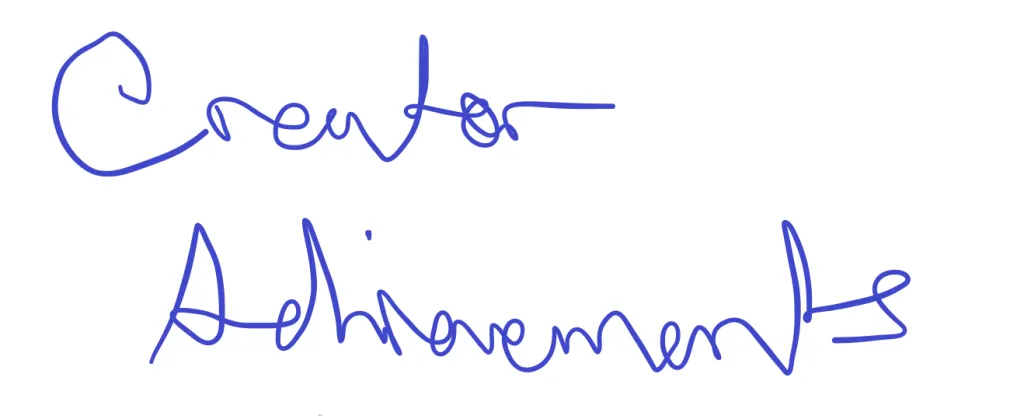 Creator
Achievements